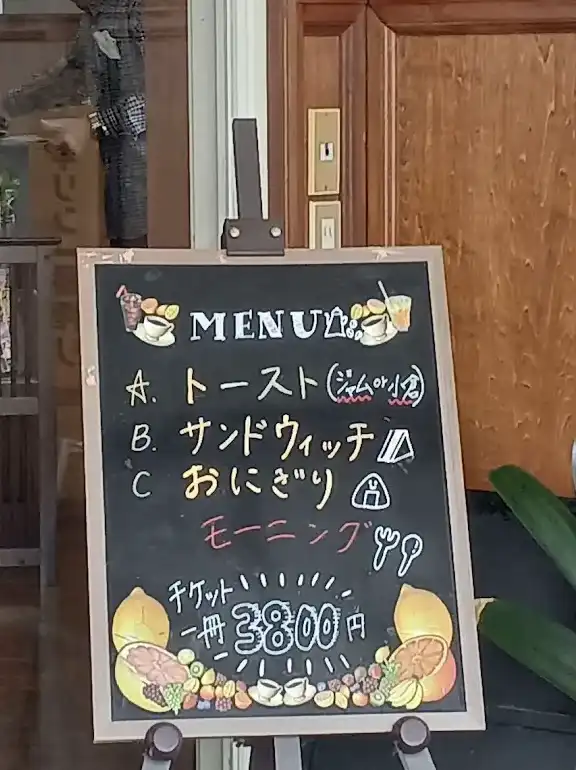 MENU
A. トースト(ジャムor小倉)
B. サンドウィッチ
C おにぎり
モーニング
チケット
一冊 3800円